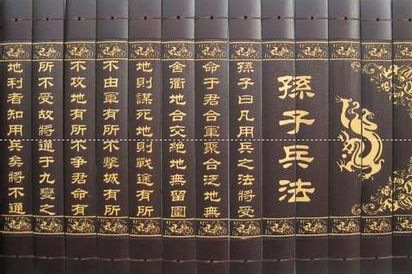 孫子兵法
孫子曰凡用兵之法將受
命于君合軍聚合泛地無
舍衢地合交絕地無留圍
地則謀死地則戰途有所
不由軍有所不擊城有所
不攻地有所不爭君命有
所不受故將通于九變之
地利者知用兵矣將不通